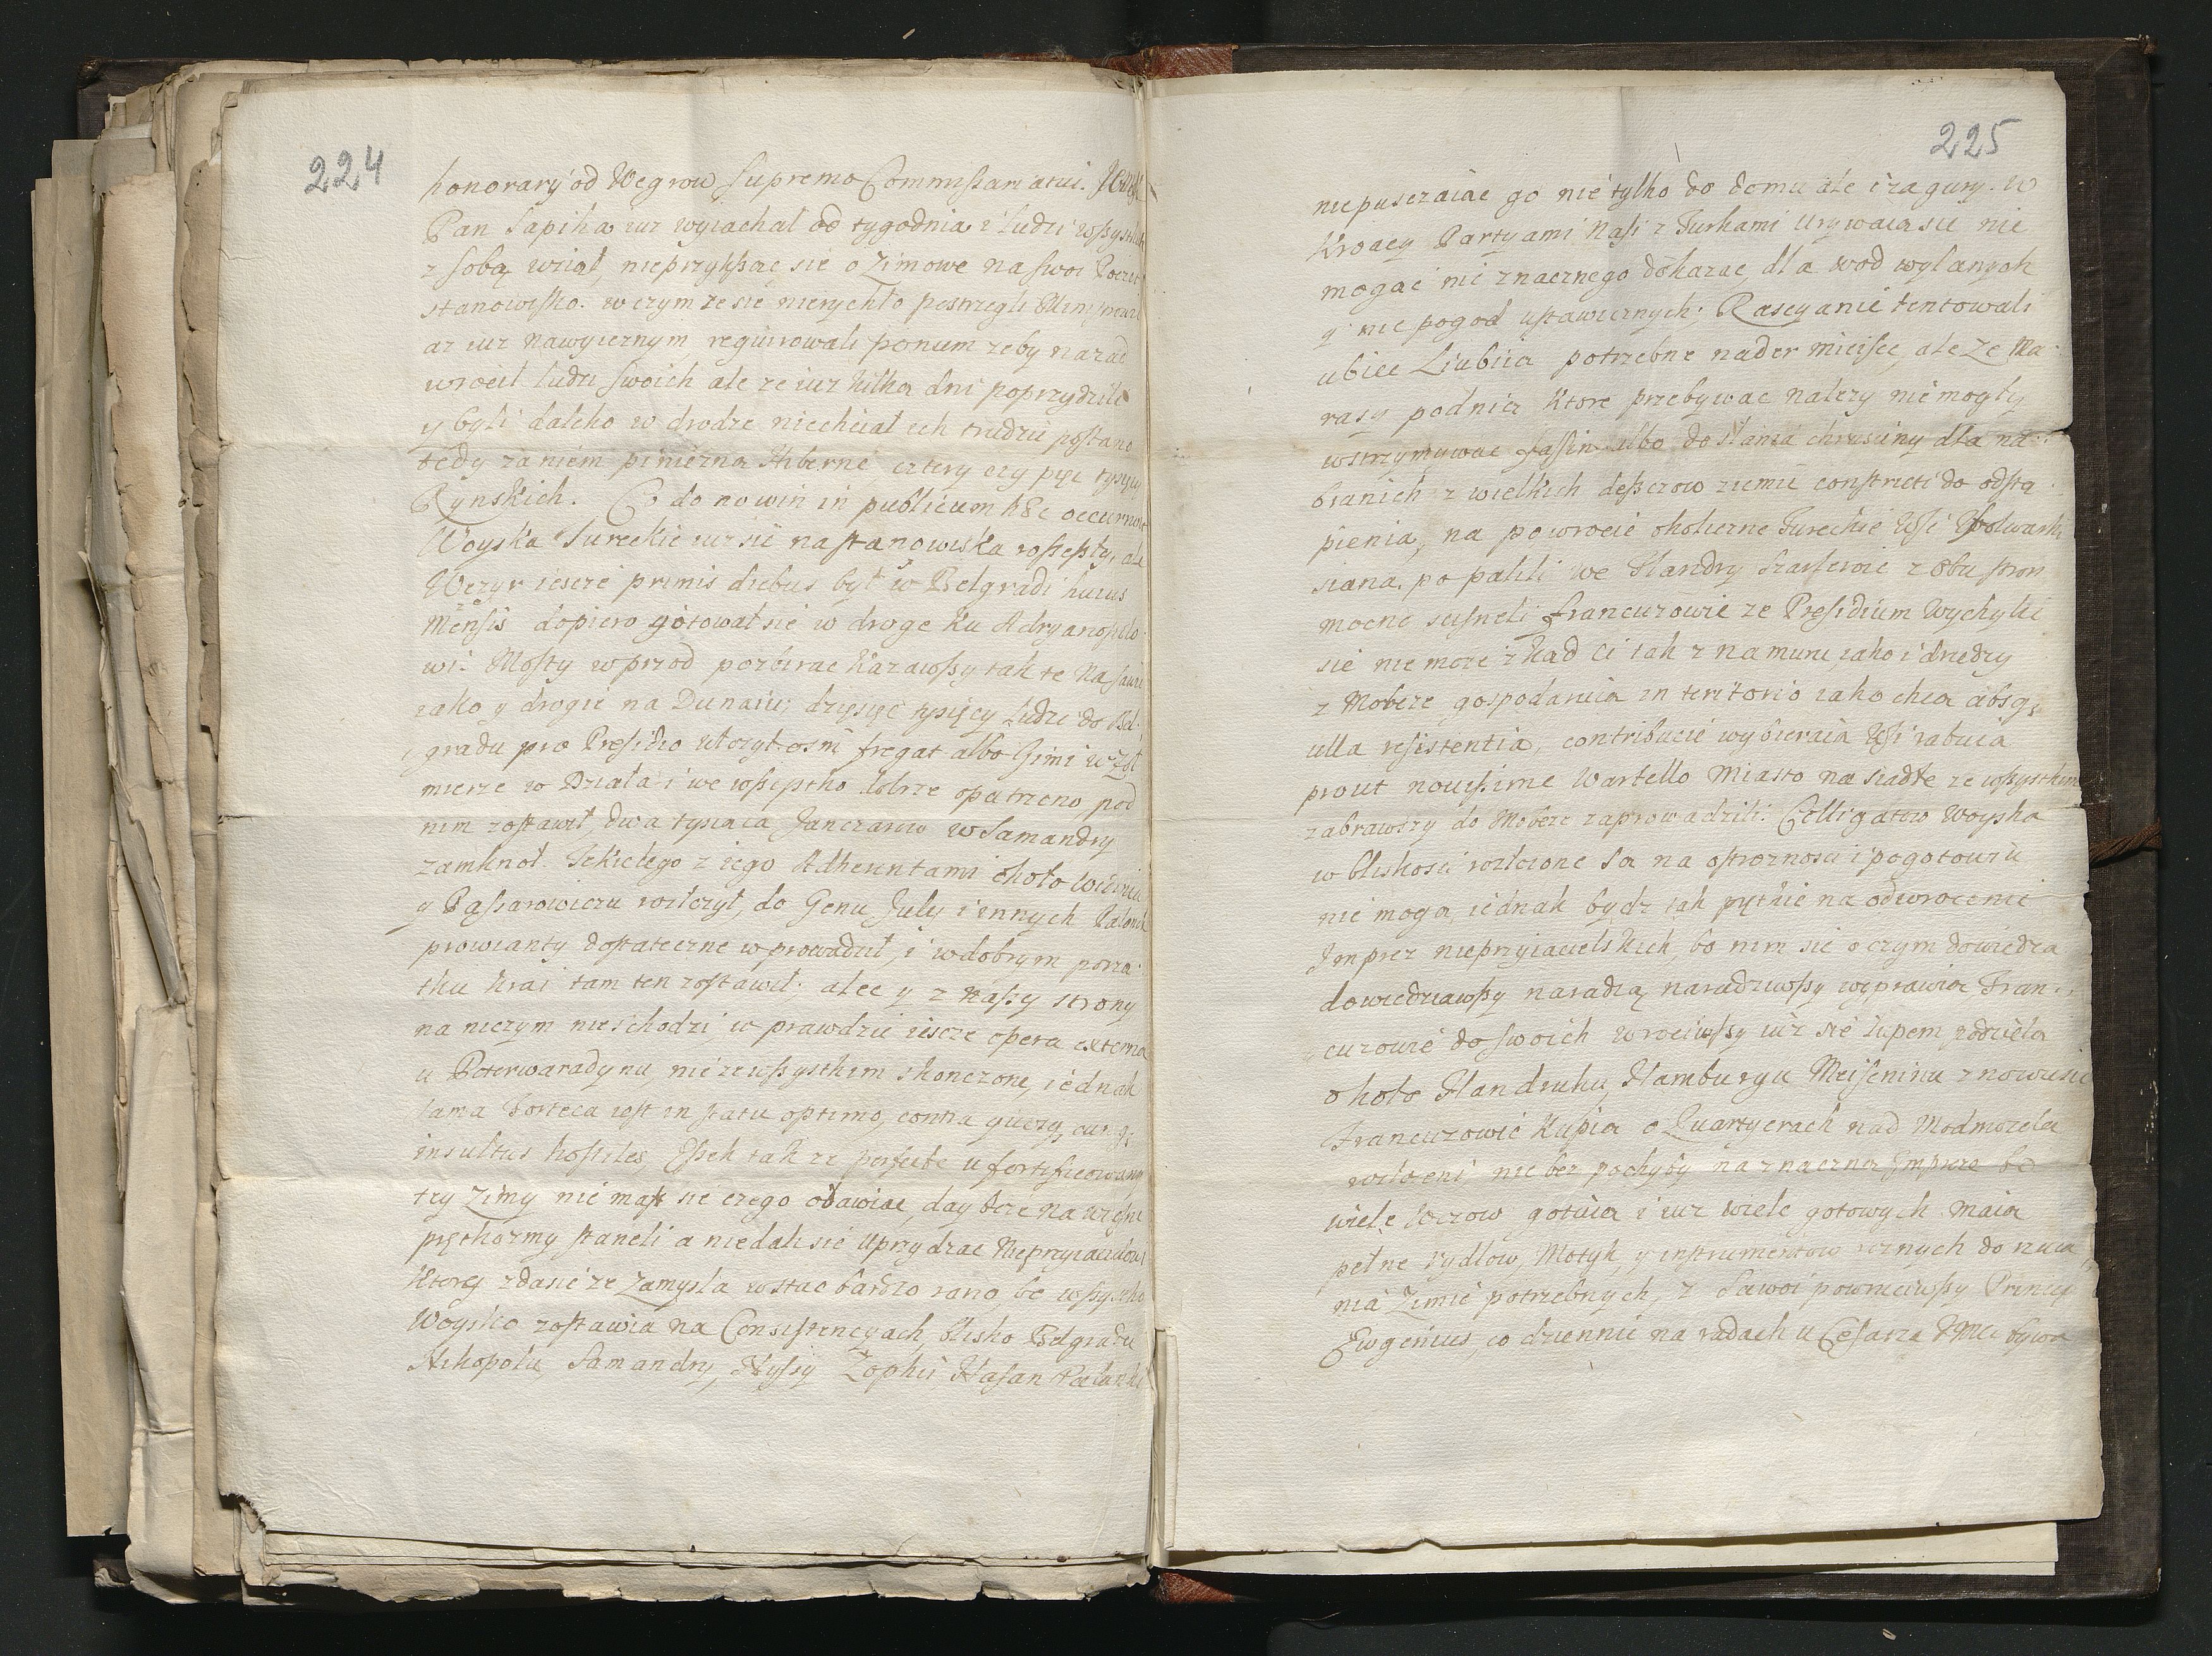 224
honorary od Wegrow Supremo Commissariatui.
Pan Sapiha iuz wyiachał od tygodnia i ludzi wszystkich
z sobą wziął, nieprzykszac się o zimowe na swoi Poczet
stanowisko. w czym ze się nierychło postrzegli
az iuz nawyieznym requirowali ponum zeby nazad
wrocił ludzi swoich ale ze iuz kilka dni poprzydzili
y byli daleko w drodze niechciał ich trudzic postano
tedy za niem pieniezna Hiberne cztery czy pięc tysięcy
Rynskich. Co do nowin in publicum hæc occurrunt
Woyska Tureckie iuz sie na stanowiska rosseszły, ale
Wezyr ieszcze primis diebus był w Belgradi huius
Mensis dopiero gotował sie w droge ku Adryanopolo
wi. Mosty wprzod pozbierac kazawszy tak te na Sawie
iako y drogie na Dunaiu; dziesięć tysięcy ludzi do Bel
gradu pro Presidio włozył osm fregat albo Gimi
mierze w Działa i we wszystko dobrze opatrzono, pod
nim zostawił, dwa tysiaca Janczarow w Samandry
zamknoł. Tekielego z iego Adherentami około Widinia
y Passarowiczu rozłozył, do Genu July i innych Palanek
prowianty dostateczne wprowadził, i w dobrym porza
tku krai tam ten zostawił. alec y z naszy strony
na niczym nieschodzi w prawdzie ieszcze opera externa
u Peterwaradynu, nie ze wszystkim skonczone, iednak
sama Forteca iest in statu optimo, contra quosq cunqz
insultus hostiles, Essek tak ze perfecte ufortificowany
try Zimy nie masz sie czego obawiac, day boze na wiosne
pręthozmy staneli a niedali sie uprzydzac Nieprzyiacielowi
ktory zdasie ze zamysla wstac bardzo rano, bo wszystko
Woysko zostawia na Consistencyach, blisko Belgradu
Skopolu, Samandry, Nyssy Zophii Hasan Palanki
225
niepuszczaiac go nie tylko do domu ale i zagury. w
Kroacy Partyami Nasi z Turkami urywaia sie nie
mogac nic znacznego dokazac, dla wod wylanych
y nie pogod ustawicznych. Rascyanie tentowali
ubiec Liubiia potrzebne nader mieisce, ale ze Ma
rasy podnia ktore przebywac nalezy nie mogły
wstrzymywac fassin albo do słania chrusciny dla na
branich z wielkich deszczow ziemie constricti do odsta
pienia, na powrocie okoliczne Tureckie Wsi y folwarki
siana popalili we Flandry z obu stron
mocno scisneli francuzowie ze Presidium wychylic
sie nie moze zkad ci tak z namuru, iako i dnedzy
z Moberze gospodaruia in teritorio iako chca absqz
ulla resistentia, contribucie wybieraia Wsi rabuia
prout novissime Wartello Miasto na siadłe ze wszystkim
zabrawszy do Moberz zaprowadzili. Colligatow Woyska
w bliskosci rozłozone sa na ostroznosci i pogotowiu
nie moga, iednak bydz tak prętkie na odwrocenie
Imprez nieprzyiacielskich, bo nim sie o czym dowiedza
dowiedziawszy naradza, naradziwszy wyprawia Fran
cuzowie do swoich wrociwszy iuz sie łupem podziela
około Handruku, Hamburgu Meiseninu znowusie
Francuzowie kupia o Quartyerach nad Modmozelei
rozłozeni, nie bez pochyby na znaczna Impreze bo
wiele Wozow gotuia i iuz wiele gotowych maia
pełne rydlow, Motyk, y instrumentow roznych do rucia
nia Zimie potrzebnych, z Sawoi powrociwszy Princip
Ewgenius, co dziennie na radach u Cesarza JMci bywa